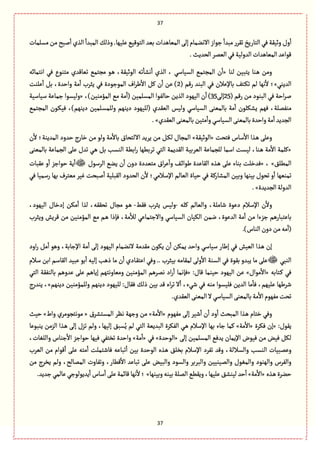 37
أول وثيقة في التاريخ تقرر مبدأ جواز الانضمام إلى المعاهدات بعد التوقيع عليها. وذلك المبدأ الذي أصبح من مسلمات
قواعد المعاهدات الدولية في العصر الحديث .
ومن هنا يتبين لنا «أن المجتمع السياسي ، الذي أنشأته الوثيقة ، هو مجتمع تعاقدي متنوع في انتمائه
الديني»؛ لأنها لم تكتف بالإعلان في البند رقم (2) من أن كل الأطراف الموجودة في يثرب أمة واحدة ، بل أعلنت
صراحة في البنود من رقم (25إلى35) أن اليهود الذين حالفوا المسلمين (أمة مع المؤمنين) ، «وليسوا جماعة سياسية
منفصلة ، فهم يشكلون أمة بالمعنى السياسي وليس العقدي (لليهود دينهم وللمسلمين دينهم) ، فيكون المجتمع
الجديد أمة واحدة بالمعنى السياسي وأمتين بالمعنى العقدي» .
وعلى هذا الأساس فتحت «الوثيقة» المجال لكل من يريد الالتحاق بالأمة ولو من خارج حدود المدينة ؛ لأن
«كلمة الأمة هنا ، ليست اسما للجماعة العربية القديمة التي تربطها رابطة النسب بل هي تدل على الجماعة بالمعنى
المطلق» ، «فدخلت بناء على هذه القاعدة طوائف وأعراق متعددة دون أن يضع الرسول ﷺ أية حواجز أو عقبات
تمنعها أو تحول بينها وبين المشاركة في حياة العالم الإسلامي؛ لأن الحدود القبلية أصبحت غير معترف بها رسميا في
الدولة الجديدة» .
ولأن الإسلام دعوة شاملة ، والعالم كله -وليس يثرب فقط- هو مجال تحققه ، لذا أمكن إدخال اليهود ،
باعتبارهم جزءا من أمة الدعوة ، ضمن الكيان السياسي والاجتماعي للأمة ، فإذا هم مع المؤمنين من قريش ويثرب
(أمة من دون الناس).
إن هذا العيش في إطار سياسي واحد يمكن أن يكون مقدمة لانضمام اليهود إلى أمة الإجابة ، وهو أمل راود
النبي ﷺ على ما يبدو بقوة في السنة الأولى لمقامه بيثرب .. وفي اعتقادي أن ما ذهب إليه أبو عبيد القاسم ابن سلام
في كتابه «الأموال» عن اليهود حينما قال: «فإنما أراد نصرهم المؤمنين ومعاونتهم إياهم على عدوهم بالنفقة التي
شرطها عليهم ، فأما الدين فليسوا منه في شيء ، ألا تراه قد بين ذلك فقال: لليهود دينهم وللمؤمنين دينهم» ، يندرج
تحت مفهوم الأمة بالمعنى السياسي لا المعنى العقدي.
وفي ختام هذا المبحث أود أن أشير إلى مفهوم «الأمة» من وجهة نظر المستشرق «مونتجومري واط» حيث
يقول: «إن فكرة «الأمة» كما جاء بها الإسلام هي الفكرة البديعة التي لم يُسبق إليها ، ولم تزل إلى هذا الزمن ينبوعا
لكل فيض من فيوض الإيمان يدفع المسلمين إلى «الوحدة» في «أمة» واحدة تختفي فيها حواجز الأجناس واللغات ،
وعصبيات النسب والسلالة ، وقد تفرد الإسلام بخلق هذه الوحدة بين أتباعه فاشتملت أمته على أقوام من العرب
والفرس والهنود والمغول والصينيين والبربر والسود والبيض على تباعد الأقطار ، وتفاوت المصالح ، ولم يخرج من
حضرة هذه «الأمة» أحد لينشق عليها ، ويقطع الصلة بينه وبينها» ؛ لأنها قائمة على أساس أيديولوجي عالمي جديد.
37